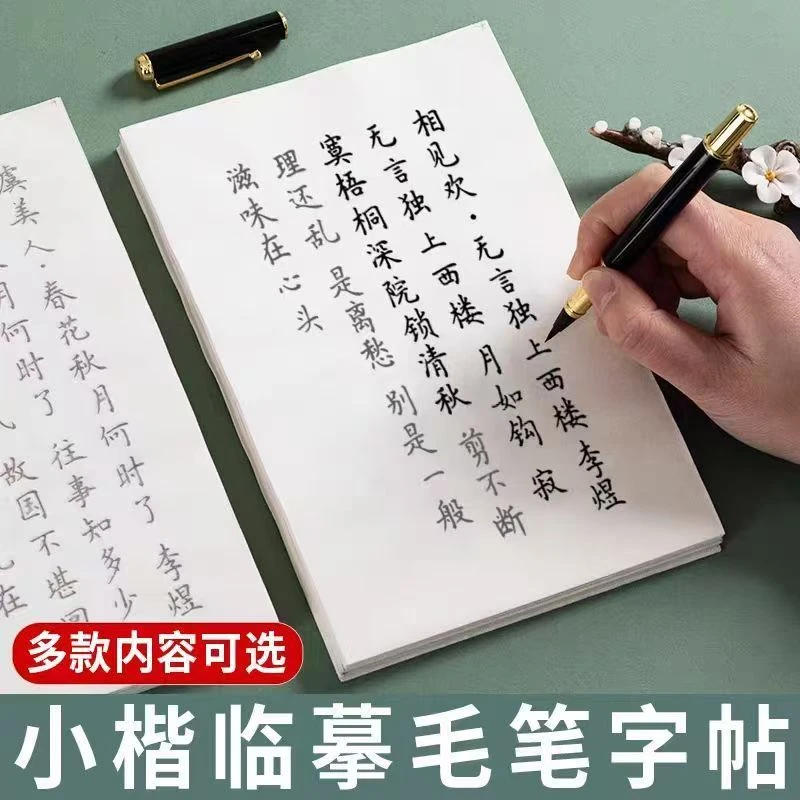 相见欢·无言独上西楼 李煜
无言独上西楼 月如钩 寂
寞梧桐深院锁清秋 剪不断
理还乱 是离愁 别是一般
滋味在心头
虞美人·春花秋月何时了 李煜
月何时了 往事知多少
故国不堪回
在
多款内容可选
小楷临摹毛笔字帖